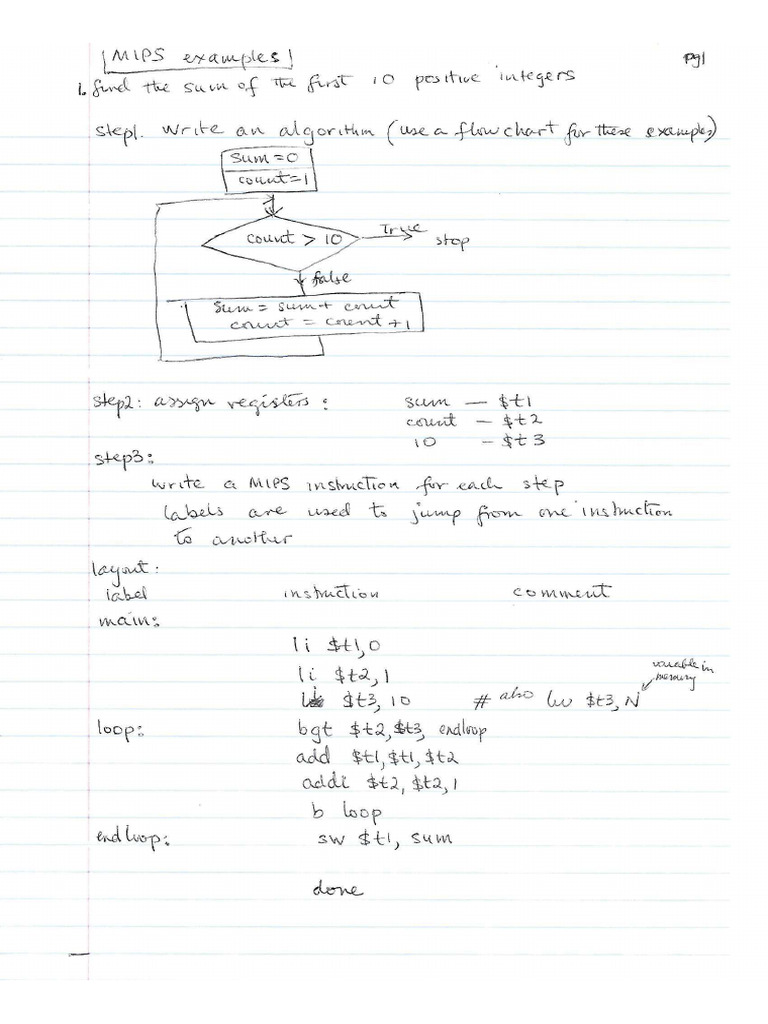 MIPS examples pg1
1. find the sum of the first 10 positive integers
step1. write an algorithm (use a flow chart for these examples)
sum = 0
count = 1
count > 10 True stop
false
sum = sum + count
count = count + 1
step2: assign registers : sum — $t1
count — $t2
10 - $t3
step3:
write a MIPS instruction for each step
labels are used to jump from one instruction
to another
layout:
label instruction comment
main:
li $t1,0
li $t2,1
variable in
memory
li $t3, 10 # also lw $t3, N
loop: bgt $t2, $t3, endloop
add $t1, $t1, $t2
addi $t2, $t2, 1
b loop
endloop: sw $t1, sum
done